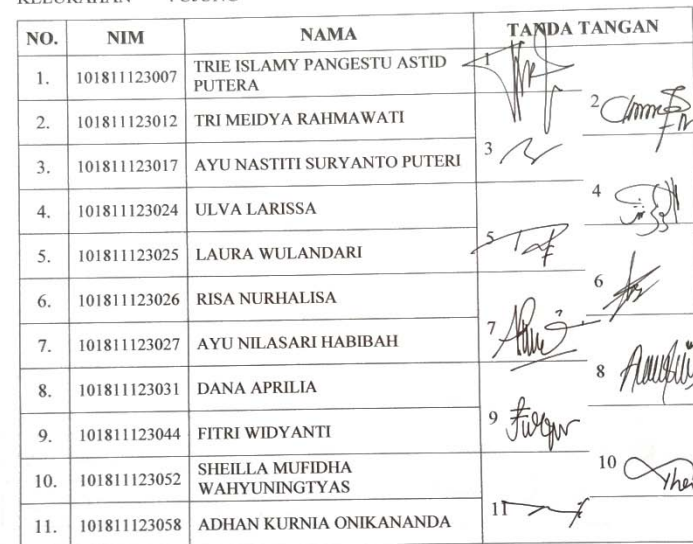 NO. NIM NAMA TANDA TANGAN
1. 101811123007 TRIE ISLAMY PANGESTU ASTID 1
PUTERA
2. 101811123012 TRI MEIDYA RAHMAWATI 2
3. 101811123017 AYU NASTITI SURYANTO PUTERI 3
4. 101811123024 ULVA LARISSA 4
5. 101811123025 LAURA WULANDARI 5
6. 101811123026 RISA NURHALISA 6
7. 101811123027 AYU NILASARI HABIBAH 7
8. 101811123031 DANA APRILIA 8
9. 101811123044 FITRI WIDYANTI 9
10. 101811123052 SHEILLA MUFIDHA 10
WAHYUNINGTYAS
11. 101811123058 ADHAN KURNIA ONIKANANDA 11